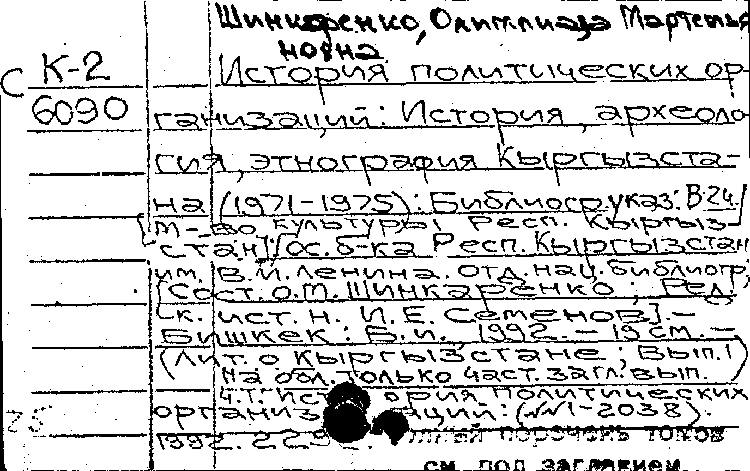 Шинкаренко, Олимпиада Мартемья
новна
С К-2
6090
История политических ор-
ганизаций: История, археоло-
гия, этнография Кыргызста-
на (1971-1975): Библиогр. указ.: В 2ч./
[М-во культуры Респ. Кыргыз-
стан]; Гос. б-ка Респ. Кыргызстан
им. В.И. Ленина. Отд. нац. библиогр;
[Сост. О.М. Шинкаренко; Ред.
к. ист. н. И.Е. Семенов].-
Бишкек: Б.и., 1992. - 19 см. -
(Лит. о Кыргызстане; Вып. 1)
На обл. только част. загл., вып.
Ч.1. История политических
организаций: (№№1-2038).
1992. 22 Полный перечень томов
см. под заглавием
25